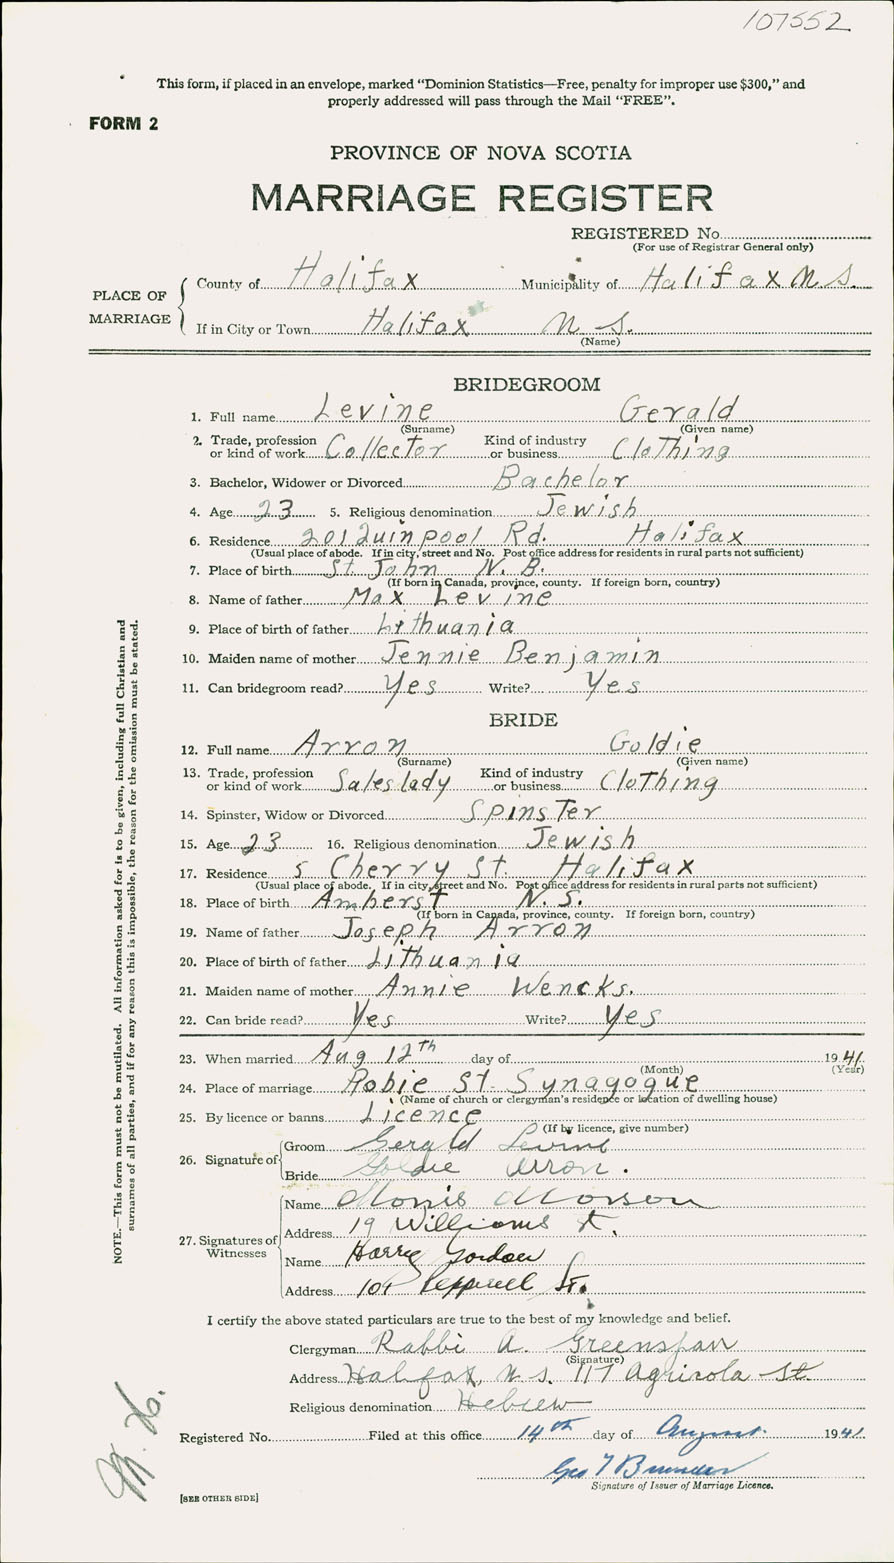 107552
This form, if placed in an envelope, marked “Dominion Statistics—Free, penalty for improper use $300,” and
properly addressed will pass through the Mail “FREE”.
FORM 2
PROVINCE OF NOVA SCOTIA
MARRIAGE REGISTER
REGISTERED No.
(For use of Registrar General only)
PLACE OF MARRIAGE
County of Halifax Municipality of Halifax N.S.
If in City or Town Halifax N.S.
(Name)
BRIDEGROOM
1. Full name Levine Gerald
(Surname) (Given name)
2. Trade, profession or kind of work Collector Kind of industry or business Clothing
3. Bachelor, Widower or Divorced Bachelor
4. Age 23 5. Religious denomination Jewish
6. Residence 201 Quinpool Rd. Halifax
(Usual place of abode. If in city, street and No. Post office address for residents in rural parts not sufficient)
7. Place of birth St. John N.B.
(If born in Canada, province, county. If foreign born, country)
8. Name of father Max Levine
9. Place of birth of father Lithuania
10. Maiden name of mother Jennie Benjamin
11. Can bridegroom read? Yes Write? Yes
BRIDE
12. Full name Arron Goldie
(Surname) (Given name)
13. Trade, profession or kind of work Saleslady Kind of industry or business Clothing
14. Spinster, Widow or Divorced Spinster
15. Age 23 16. Religious denomination Jewish
17. Residence 5 Cherry St. Halifax
(Usual place of abode. If in city, street and No. Post office address for residents in rural parts not sufficient)
18. Place of birth Amherst N.S.
(If born in Canada, province, county. If foreign born, country)
19. Name of father Joseph Arron
20. Place of birth of father Lithuania
21. Maiden name of mother Annie Wencks.
22. Can bride read? Yes Write? Yes
23. When married Aug 12th day of 1941
(Month) (Year)
24. Place of marriage Robie St. Synagogue
(Name of church or clergyman's residence or location of dwelling house)
25. By licence or banns Licence
(If by licence, give number)
26. Signature of
Groom Gerald Levine
Bride Goldie Arron.
27. Signatures of Witnesses
Name Morris
Address 19 Williams St.
Name Harry Gordon
Address 101 Pepperell St.
I certify the above stated particulars are true to the best of my knowledge and belief.
Clergyman Rabbi A. Greenspan
(Signature)
Address Halifax, N.S. 117 Agricola St.
Religious denomination Hebrew
Registered No. Filed at this office 14th day of August 1941
Geo
Signature of Issuer of Marriage Licence.
[SEE OTHER SIDE]
NOTE.—This form must not be mutilated. All information asked for is to be given, including full Christian and
surnames of all parties, and if for any reason this is impossible, the reason for the omission must be stated.